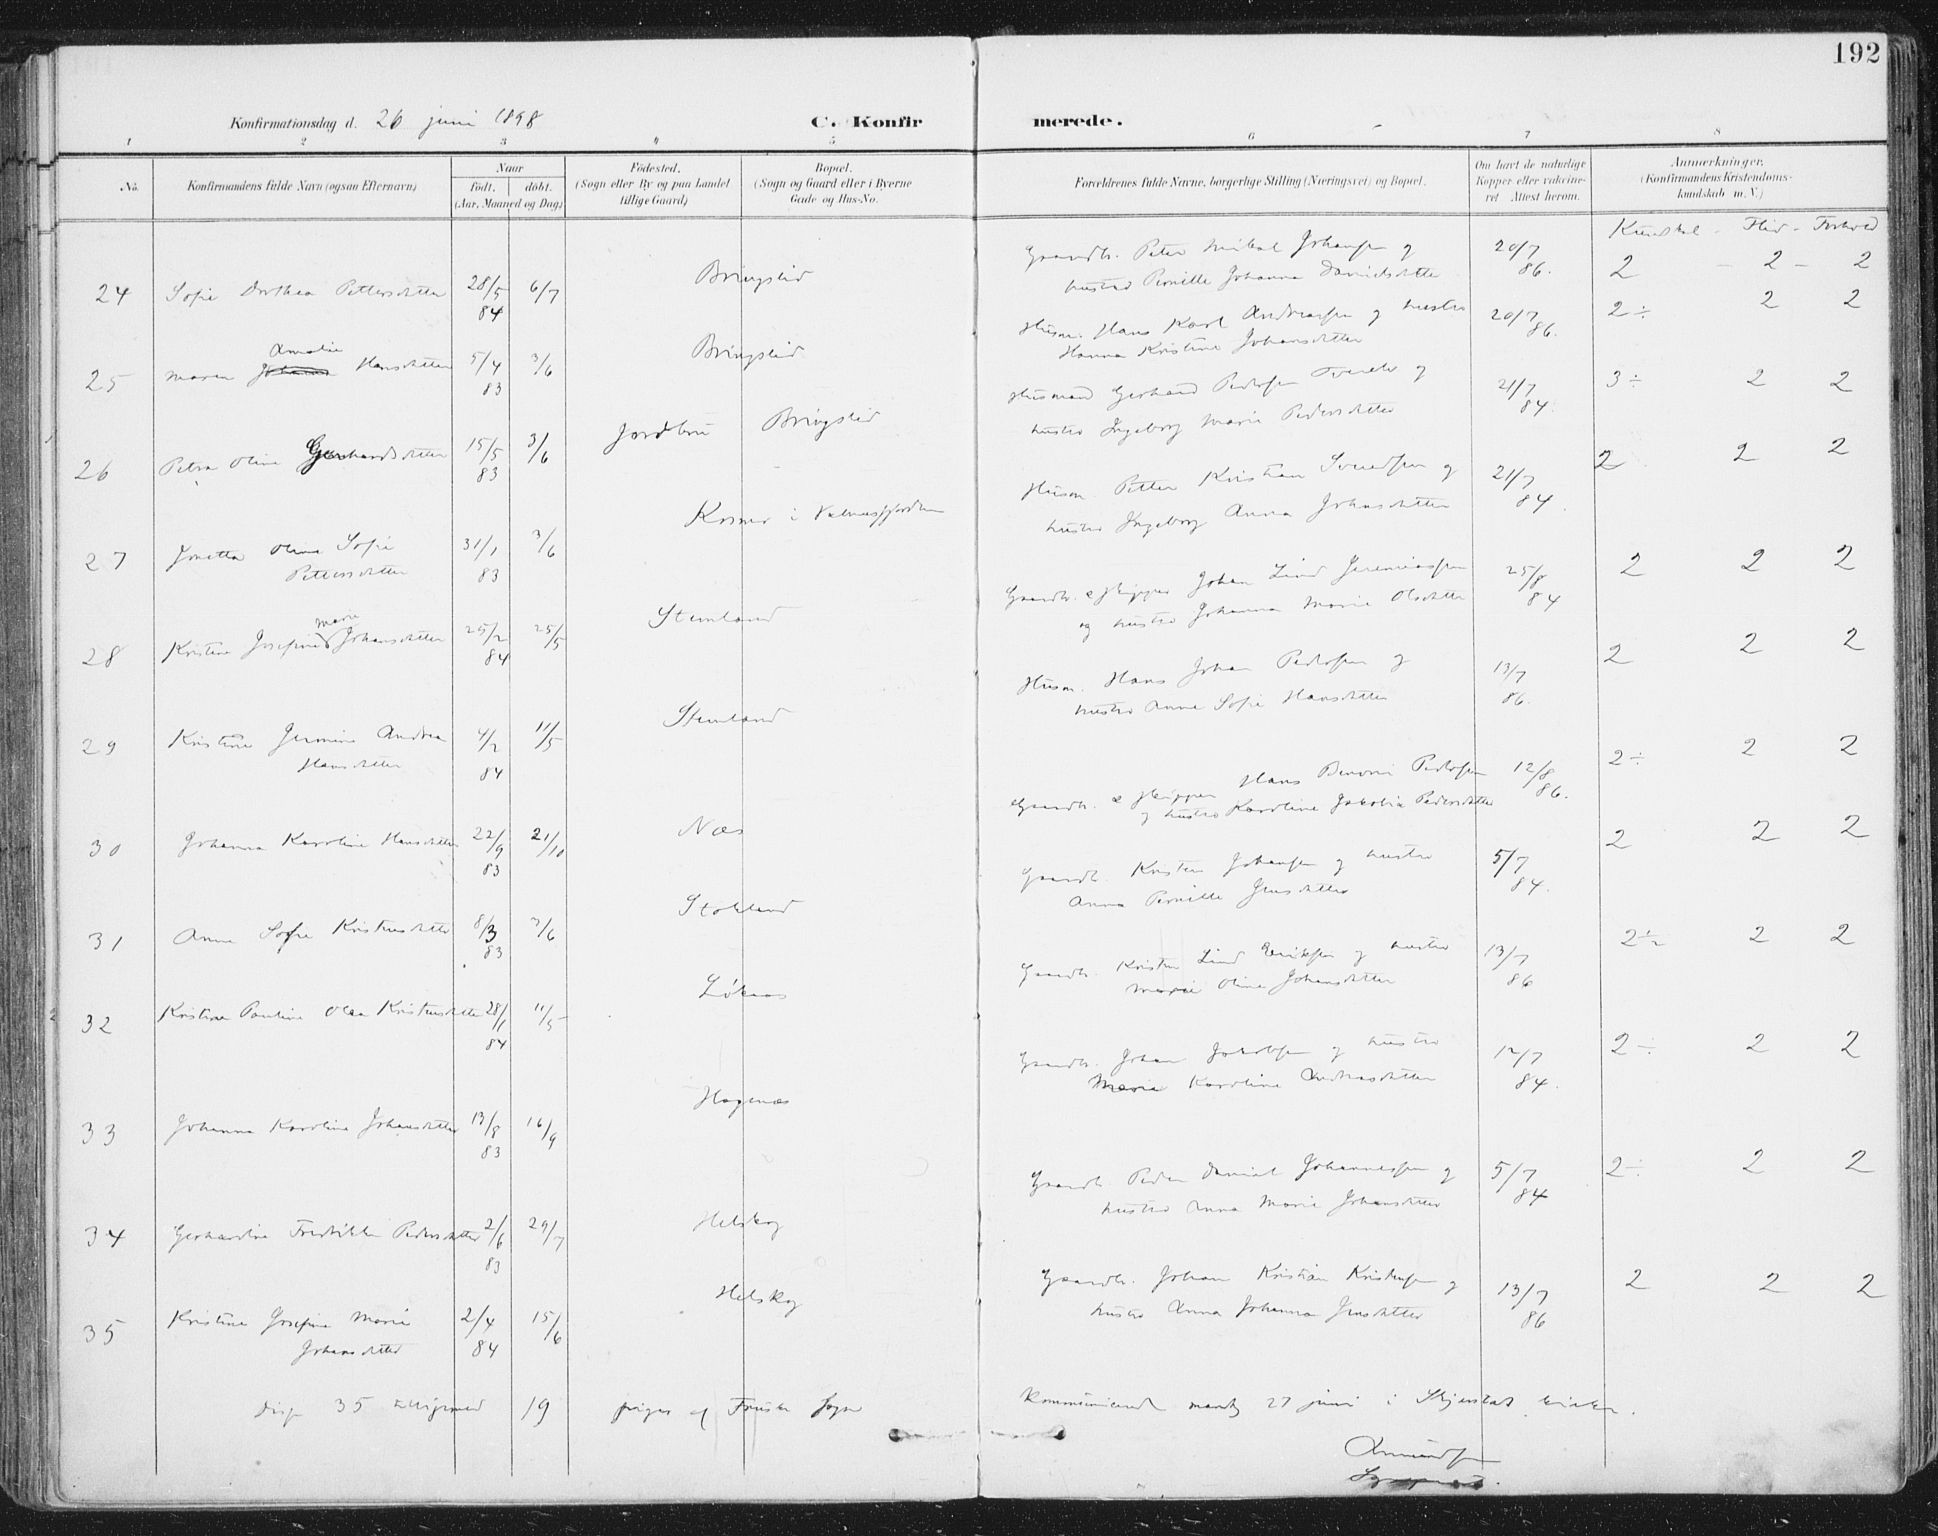 192
Konfirmationsdag d. 26 juni 1898 C. Konfirmerede.
1 2 3 4 5 6 7 8
No. Konfirmandens fulde Navn (ogsaa Efternavn) Naar født. døbt. (Aar, Maaned og Dag) Fødested. (Sogn eller By og paa Landet tillige Gaard) Bopæl. (Sogn og Gaard eller i Byerne Gade og Hus-No. Forældrenes fulde Navne, borgerlige Stilling (Næringsvei) og Bopæl. Om havt de naturlige Kopper eller vakcineret Attest herom. Anmærkninger. (Konfirmandens Kristendomskundskab m. V.)
Kundskab - Flid - Forhold
24 Sofie Dorthea Pettersdatter 28/5 84 6/7 Bringslid Gaardbr. Peter Mikal Johansen og
hustru Pernille Johanna Danielsdatter 20/7 86. 2 - 2 - 2
25 Maren Amalie Hansdatter 5/4 83 3/6 Bringslid Husm. Hans Karl Andreassen og hustru
Hanna Kristine Johansdatter 20/7 86. 2÷ 2 2
26 Petra Oline Gerhardsdatter 15/5 83 3/6 Jordbru Bringslid Husmand Gerhard Pedersen Tverelv og
hustru Ingeborg Marie Pedersdatter 21/7 84. 3÷ 2 2
27 Jonetta Oline Sofie
Pettersdatter 31/1 83 3/6 Kosmo i Valnesfjorden Husm. Petter Kristian Svendsen og
hustru Ingeborg Anna Johnsdatter 21/7 84. 2 2 2
28 Kristine Josefine Marie Johansdatter 25/2 84 25/5 Stemland Gaardbr. & skipper Johan Lind Jeremiassen
og hustru Johanna Marie Olsdatter 25/8 84 2 2 2
29 Kristine Jermine Andrea
Hansdatter 4/2 84 11/5 Stemland Husm. Hans Johan Pedersen og
hustru Anne Sofie Hansdatter 13/7 86. 2 2 2
30 Johanna Karoline Hansdatter 22/9 83 21/10 Næs Gaardbr. & skipper Hans Benoni Pedersen
og hustru Karoline Jakobia Pedersdatter 12/8 86. 2÷ 2 2
31 Anne Sofie Kristensdatter 8/3 83 3/6 Stokland Gaardb. Kristen Johansen og hustru
Anna Pernille Jensdatter 5/7 84. 2 2 2
32 Kristine Pauline Olea Kristensdatter 28/1 84 11/5 Løknes Gaardb. Kristen Lind Eriksen og hustru
Marie Oline Johansdatter 13/7 86 2½ 2 2
33 Johanna Karoline Johansdatter 13/8 83 16/9 Hagenæs Gaardb. Johan Jakobsen og hustru
Marie Karoline Andreasdatter 12/7 84. 2÷ 2 2
34 Gerhardine Fredrikke Pedersdatter 2/6 83 29/7 Helskog Gaardb. Peder Daniel Johannessen og
hustru Anna Marie Johansdatter 5/7 84 2÷ 2 2
35 Kristine Josefine Marie
Johansdatter 2/4 84 15/6 Helskog Gaardbr. Johan Kristian Kristensen og
hustru Anna Johanna Jensdatter 13/7 86 2 2 2
disse 35 19 piger af Fauske Sogn Kommunicerede mandag 27 juni i Skjerstad kirke.
Amundsen